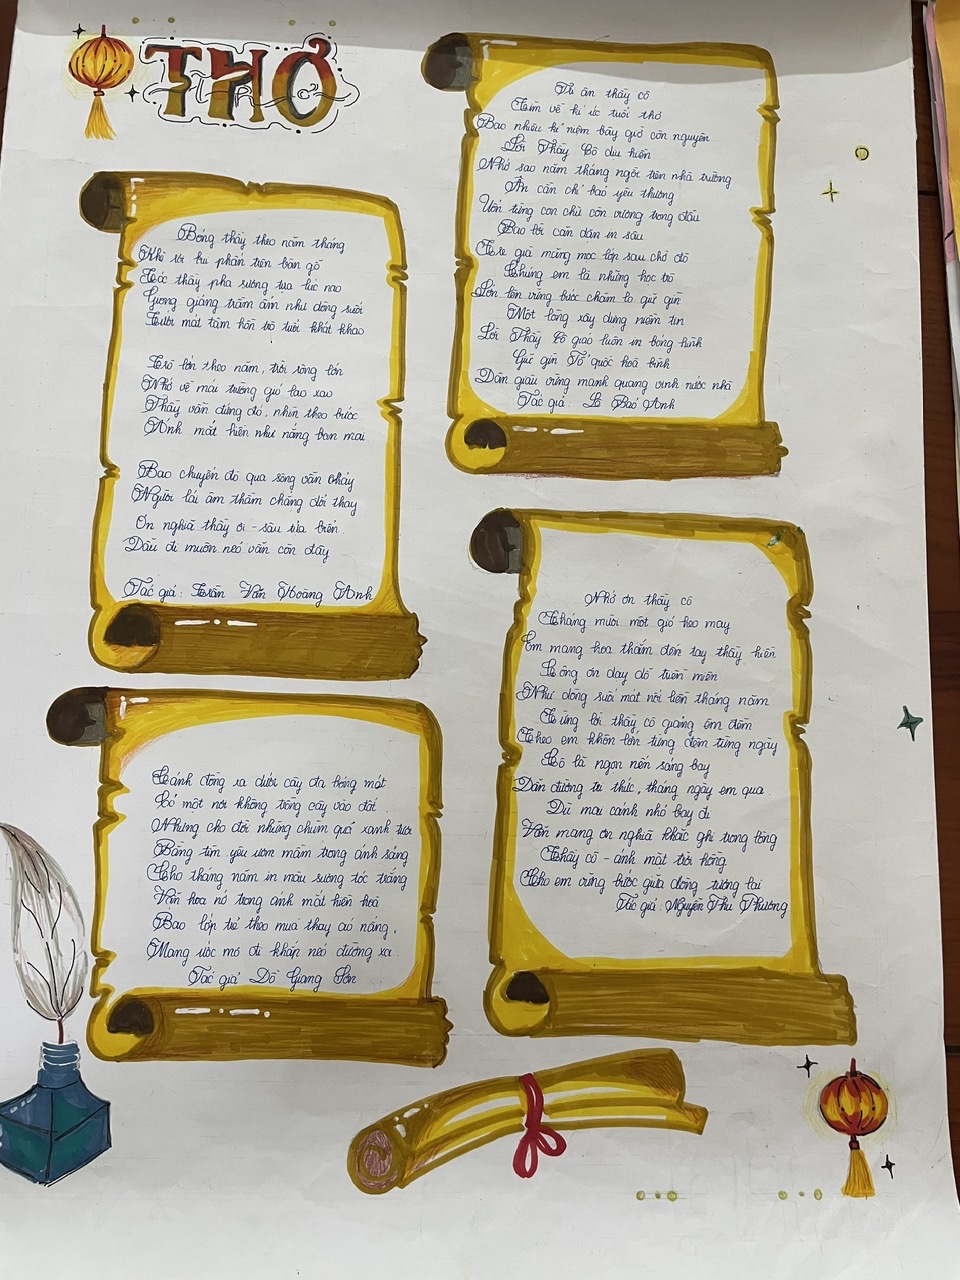 THƠ
Bóng thầy theo năm tháng
Khẽ rơi bụi phấn trên bàn gỗ
Tóc thầy pha sương tựa lúc nào
Giọng giảng trầm ấm như dòng suối
Tưới mát tâm hồn trò tuổi khát khao
Trò lớn theo năm, trôi sông lớn
Nhớ về mái trường gió lao xao
Thầy vẫn đứng đó, nhìn theo bước
Ánh mắt hiền như nắng ban mai
Bao chuyến đò qua sông vẫn chảy
Người lái âm thầm chẳng đổi thay
Ơn nghĩa thầy ơi - sâu tựa biển
Dẫu đi muôn nẻo vẫn còn đây
Tác giả: Trần Văn Hoàng Anh
Tri ân thầy cô
Tìm về kí ức tuổi thơ
Bao nhiêu kỉ niệm bây giờ còn nguyên
Lời Thầy Cô dịu hiền
Nhớ sao năm tháng ngồi trên nhà trường
Ân cần chỉ bảo yêu thương
Uốn từng con chữ còn vương trong đầu
Bao lời căn dặn in sâu
Tre già măng mọc lớp sau chờ đò
Chúng em là những học trò
Lớn lên vững bước chăm lo giữ gìn
Một lòng xây dựng niềm tin
Lời Thầy Cô giáo luôn in bóng hình
Giữ gìn Tổ quốc hoà bình
Dân giàu vững mạnh quang vinh nước nhà
Tác giả: Lê Bảo Anh
Cánh đồng xa dưới cây đa bóng mát
Có một nơi không trồng cây vào đất
Nhưng cho đời những chùm quả xanh tươi
Bằng tim yêu ươm mầm trong ánh sáng
Cho tháng năm in màu sương tóc trắng
Vẫn hoa nở trong ánh mắt hiền hoà
Bao lớp trẻ theo mùa thay áo nắng,
Mang ước mơ đi khắp nẻo đường xa.
Tác giả Đỗ Giang Sơn
Nhớ ơn thầy cô
Tháng mười một gió heo may
Em mang hoa thắm đến tay thầy hiền
Công ơn dạy dỗ triền miên
Như dòng suối mát nối liền tháng năm
Từng lời thầy cô giảng êm đềm
Theo em khôn lớn từng đêm từng ngày
Cô là ngọn nến sáng bay
Dẫn đường tri thức, tháng ngày em qua
Dù mai cánh nhỏ bay đi
Vẫn mang ơn nghĩa khắc ghi trong lòng
Thầy cô - ánh mặt trời hồng
Cho em vững bước giữa dòng tương lai
Tác giả: Nguyễn Thu Phương